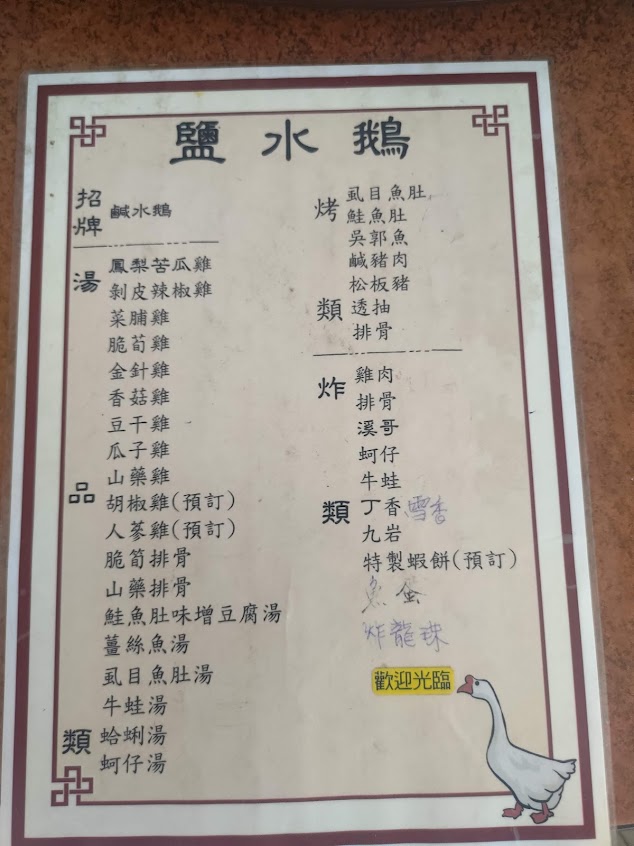 鹽水鵝
招牌
鹹水鵝
湯品類
鳳梨苦瓜雞
剝皮辣椒雞
菜脯雞
脆筍雞
金針雞
香菇雞
豆干雞
瓜子雞
山藥雞
胡椒雞(預訂)
人蔘雞(預訂)
脆筍排骨
山藥排骨
鮭魚肚味增豆腐湯
薑絲魚湯
虱目魚肚湯
牛蛙湯
蛤蜊湯
蚵仔湯
烤類
虱目魚肚
鮭魚肚
吳郭魚
鹹豬肉
松板豬
透抽
排骨
炸類
雞肉
排骨
溪哥
蚵仔
牛蛙
丁香 雪香
九岩
特製蝦餅(預訂)
魚蛋
炸龍珠
歡迎光臨